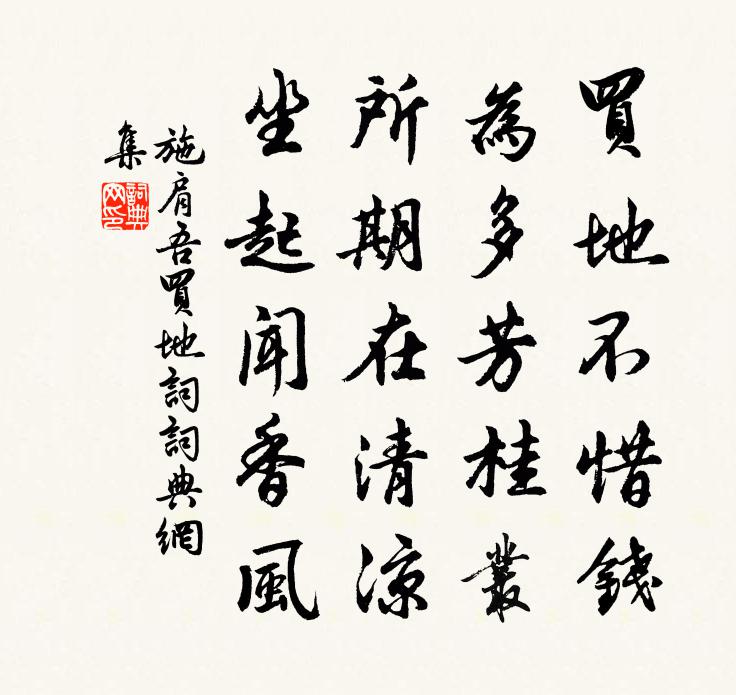 買地不惜錢
為多芳桂叢
所期在清涼
坐起聞香風
施肩吾買地詞詞典網
集
詞典网印